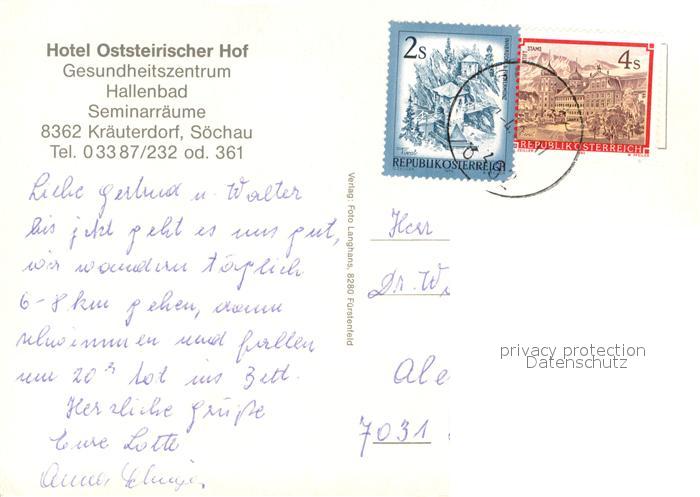 Hotel Oststeirischer Hof
Gesundheitszentrum
Hallenbad
Seminarräume
8362 Kräuterdorf, Söchau
Tel. 0 33 87/232 od. 361
Liebe Gertrud u. Walter
bis jetzt geht es uns gut,
wir wandern täglich
6-8 km gehen, dann
schwimmen und fallen
um 20h tot ins Bett.
Herzliche Grüße
Eure Lotte
Verlag: Foto Langhans, 8280 Fürstenfeld
2s
REPUBLIK ÖSTERREICH
STIFT STAMS
4s
REPUBLIK ÖSTERREICH
Herr
Dr. W
Ale
7031
privacy protection
Datenschutz